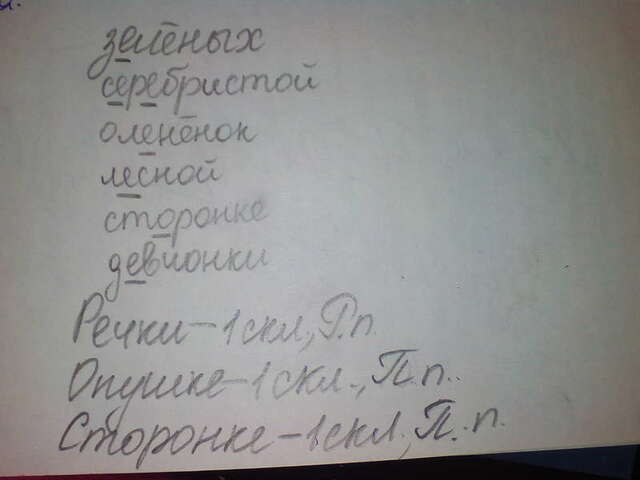 зелёных
серебристой
оленёнок
лесной
сторонке
девчонки
Речки - 1 скл., Р.п.
Опушке - 1 скл., П.п.
Сторонке - 1 скл., П.п.